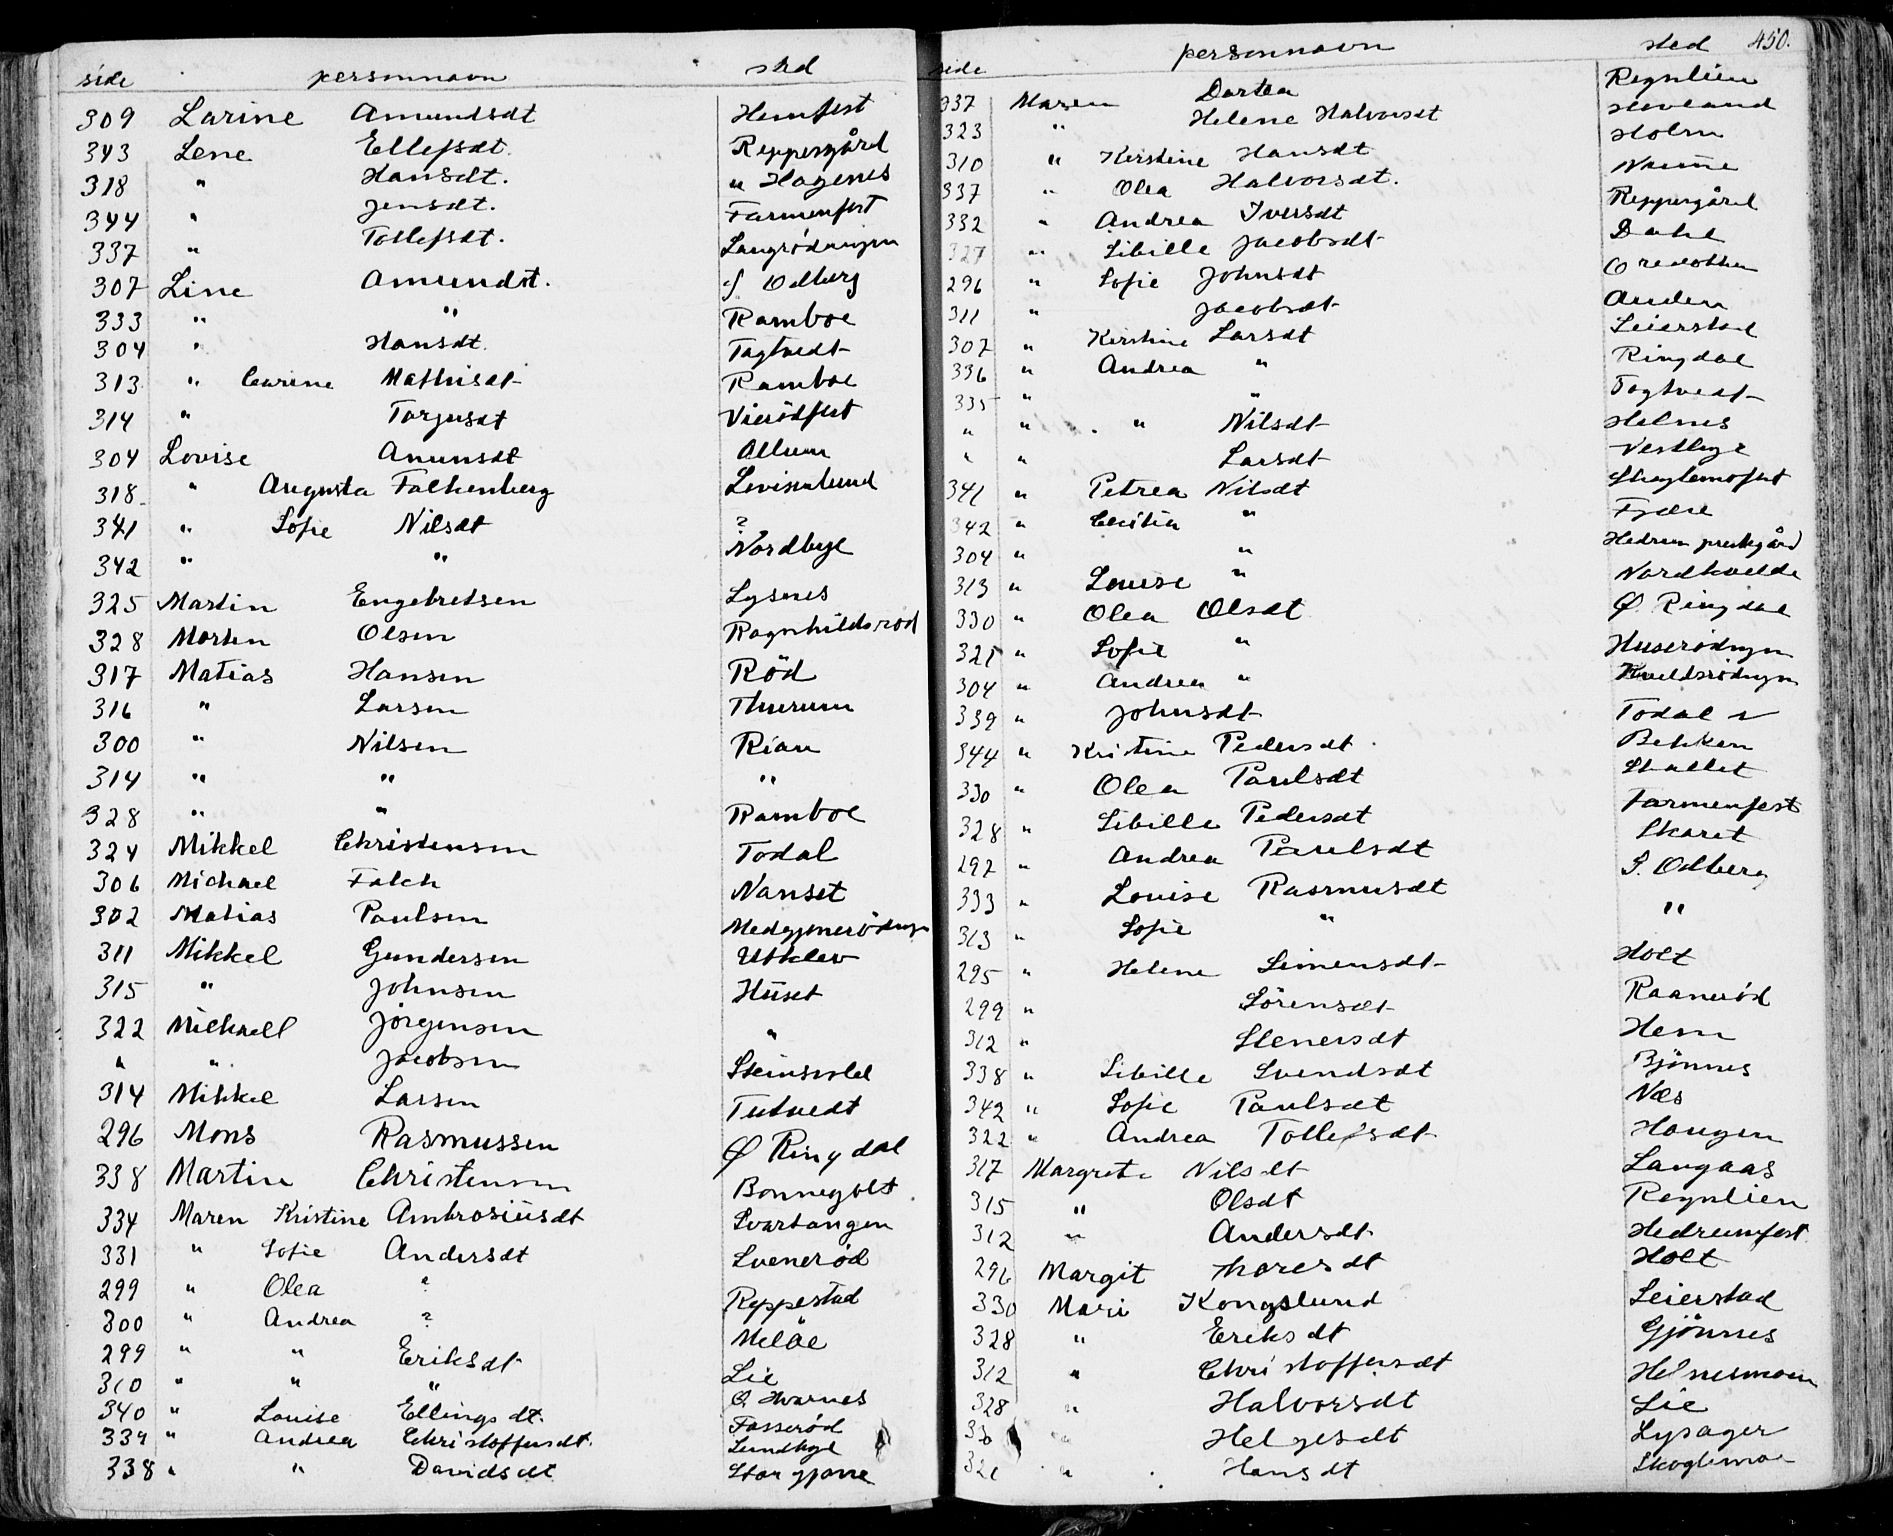 side personnavn sted
309 Larine Amundsdt Hemfest
343 Lene Ellefsdt. Reppesgård
318 " Hansdt. " Hagenes
344 " Jensdt. Farmenfest
337 " Tollefsdt.
307 Line Amundsdt. S Odberg
333 " " Ramboe
304 " Hansdt. Tagtvedt
313 " Carine Mathisdt Ramboe
314 " Torjusdt
304 Lovise Anunsdt Allum
318 " Augusta Falkenberg Lovisenlund
341 " Sofie Nilsdt ?
342 " " Nordbye
325 Martin Engebretsen Lysnes
328 Morten Olsen Ragnhildsrød
317 Matias Hansen Röd
316 " Larsen Thurum
300 " Nilsen Rian
314 " " "
328 " " Ramboe
324 Mikkel Christensen Todal
306 Michael Falch Nanset
302 Matias Paulsen
311 Mikkel Gundersen Utklev
315 " Johnsen Huset
322 Michaell Jörgensen "
" " Jacobsen Steinsholt
314 Mikkel Larsen Tutvedt
296 Mons Rasmussen Ø Ringdal
338 Martin Christensen Bonnegolt
334 Maren Kristine Ambrosiusdt Svartangen
331 " Sofie Andersdt Svenerød
299 " Olea ? Reppestad
300 " Andrea ? Meløe
299 " " Eriksdt Lie
310 " " " Ö. Hvarnes
340 " Louise Ellingsdt. Fosserød
339 " Andrea Christoffersdt. Sundbye
338 " " Davidsdt Storgjone
side personnavn sted 450.
337 Maren Dortea Regnlien
323 " Helene Halvorsdt Hovland
310 " Kerstine Hansdt Holm
337 " Olea Halvorsdt.
332 " Andrea Iversdt Reppesgård
327 " Sibille Jacobsdt Dahl
296 " Sofie Johnsdt
311 " Jacobsdt Anden
307 " Kerstine Larsdt Seierstad
336 " Andrea " Ringdal
335 " " Tagtvedt
" " " Nilsdt Helnes
" " Larsdt Vestbye
341 " Petrea Nilsdt
342 " " Fjære
304 " " Hedrum prestegård
313 " Louise " Nordkvelde
330 " Olea Olsdt Ø. Ringdal
321 " Sofie "
304 " Andrea "
339 " Johnsdt Todal
344 " Kristine Pedersdt Bekken
330 " Olea Paulsdt Skallet
328 " Sibille Pedersdt Farmenfest
297 " Andrea Paulsdt Skaret
333 " Louise Rasmusdt S. Odberg
313 " Sofie " "
295 " Helene Simensdt Holt
299 " Sörensdt Raanerød
312 " Stenersdt Hem
338 " Sibille Svendsdt Bjönnes
342 " Sofie Paulsdt Næs
322 " Andrea Tollefsdt Haugen
317 Margrete Nilsdt Langaas
315 " Olsdt Regnlien
312 " Andersdt Hedrumfest
296 Margit Thoresdt Holt
330 Mari Kongslund Seierstad
328 " Eriksdt Gjönnes
312 " Christoffersdt Helnesmoen
328 " Halvorsdt Lie
" Helgesdt Lysager
" Hansdt Skoglemoe